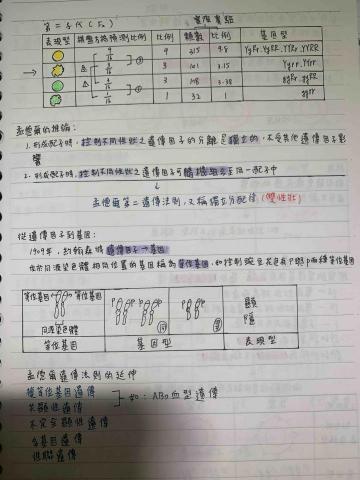 第二子代(F₂) 實際實驗
表現型 棋盤方格預測比例 比例 顆數 比例 基因型
9/16 9 315 9.8 YyRr.YyRR.YYRr.YYRR
→ 3/16 3 101 3.15 Yyrr.YYrr
3/16 3 108 3.38 yyRr.yyRR
1/16 1 32 1 yyrr
孟德爾的推論:
1. 形成配子時,控制不同性狀之遺傳因子的分離是獨立的,不受其他遺傳因子影
響
2. 形成配子時,控制不同性狀之遺傳因子可隨機組合至同一配子中
↓
孟德爾第二遺傳法則,又稱獨立分配律(雙性狀)
從遺傳因子到基因:
1909年,約翰森將遺傳因子→基因
位於同源染色體相同位置的基因稱為等位基因,如控制豌豆花色有P與p兩種等位基因
等位基因 等位基因 顯
P P P p p p 隱
同源染色體
等位基因 基因型 表現型
孟德爾遺傳法則的延伸
複等位基因遺傳
共顯性遺傳 如:ABO血型遺傳
不完全顯性遺傳
多基因遺傳
性聯遺傳